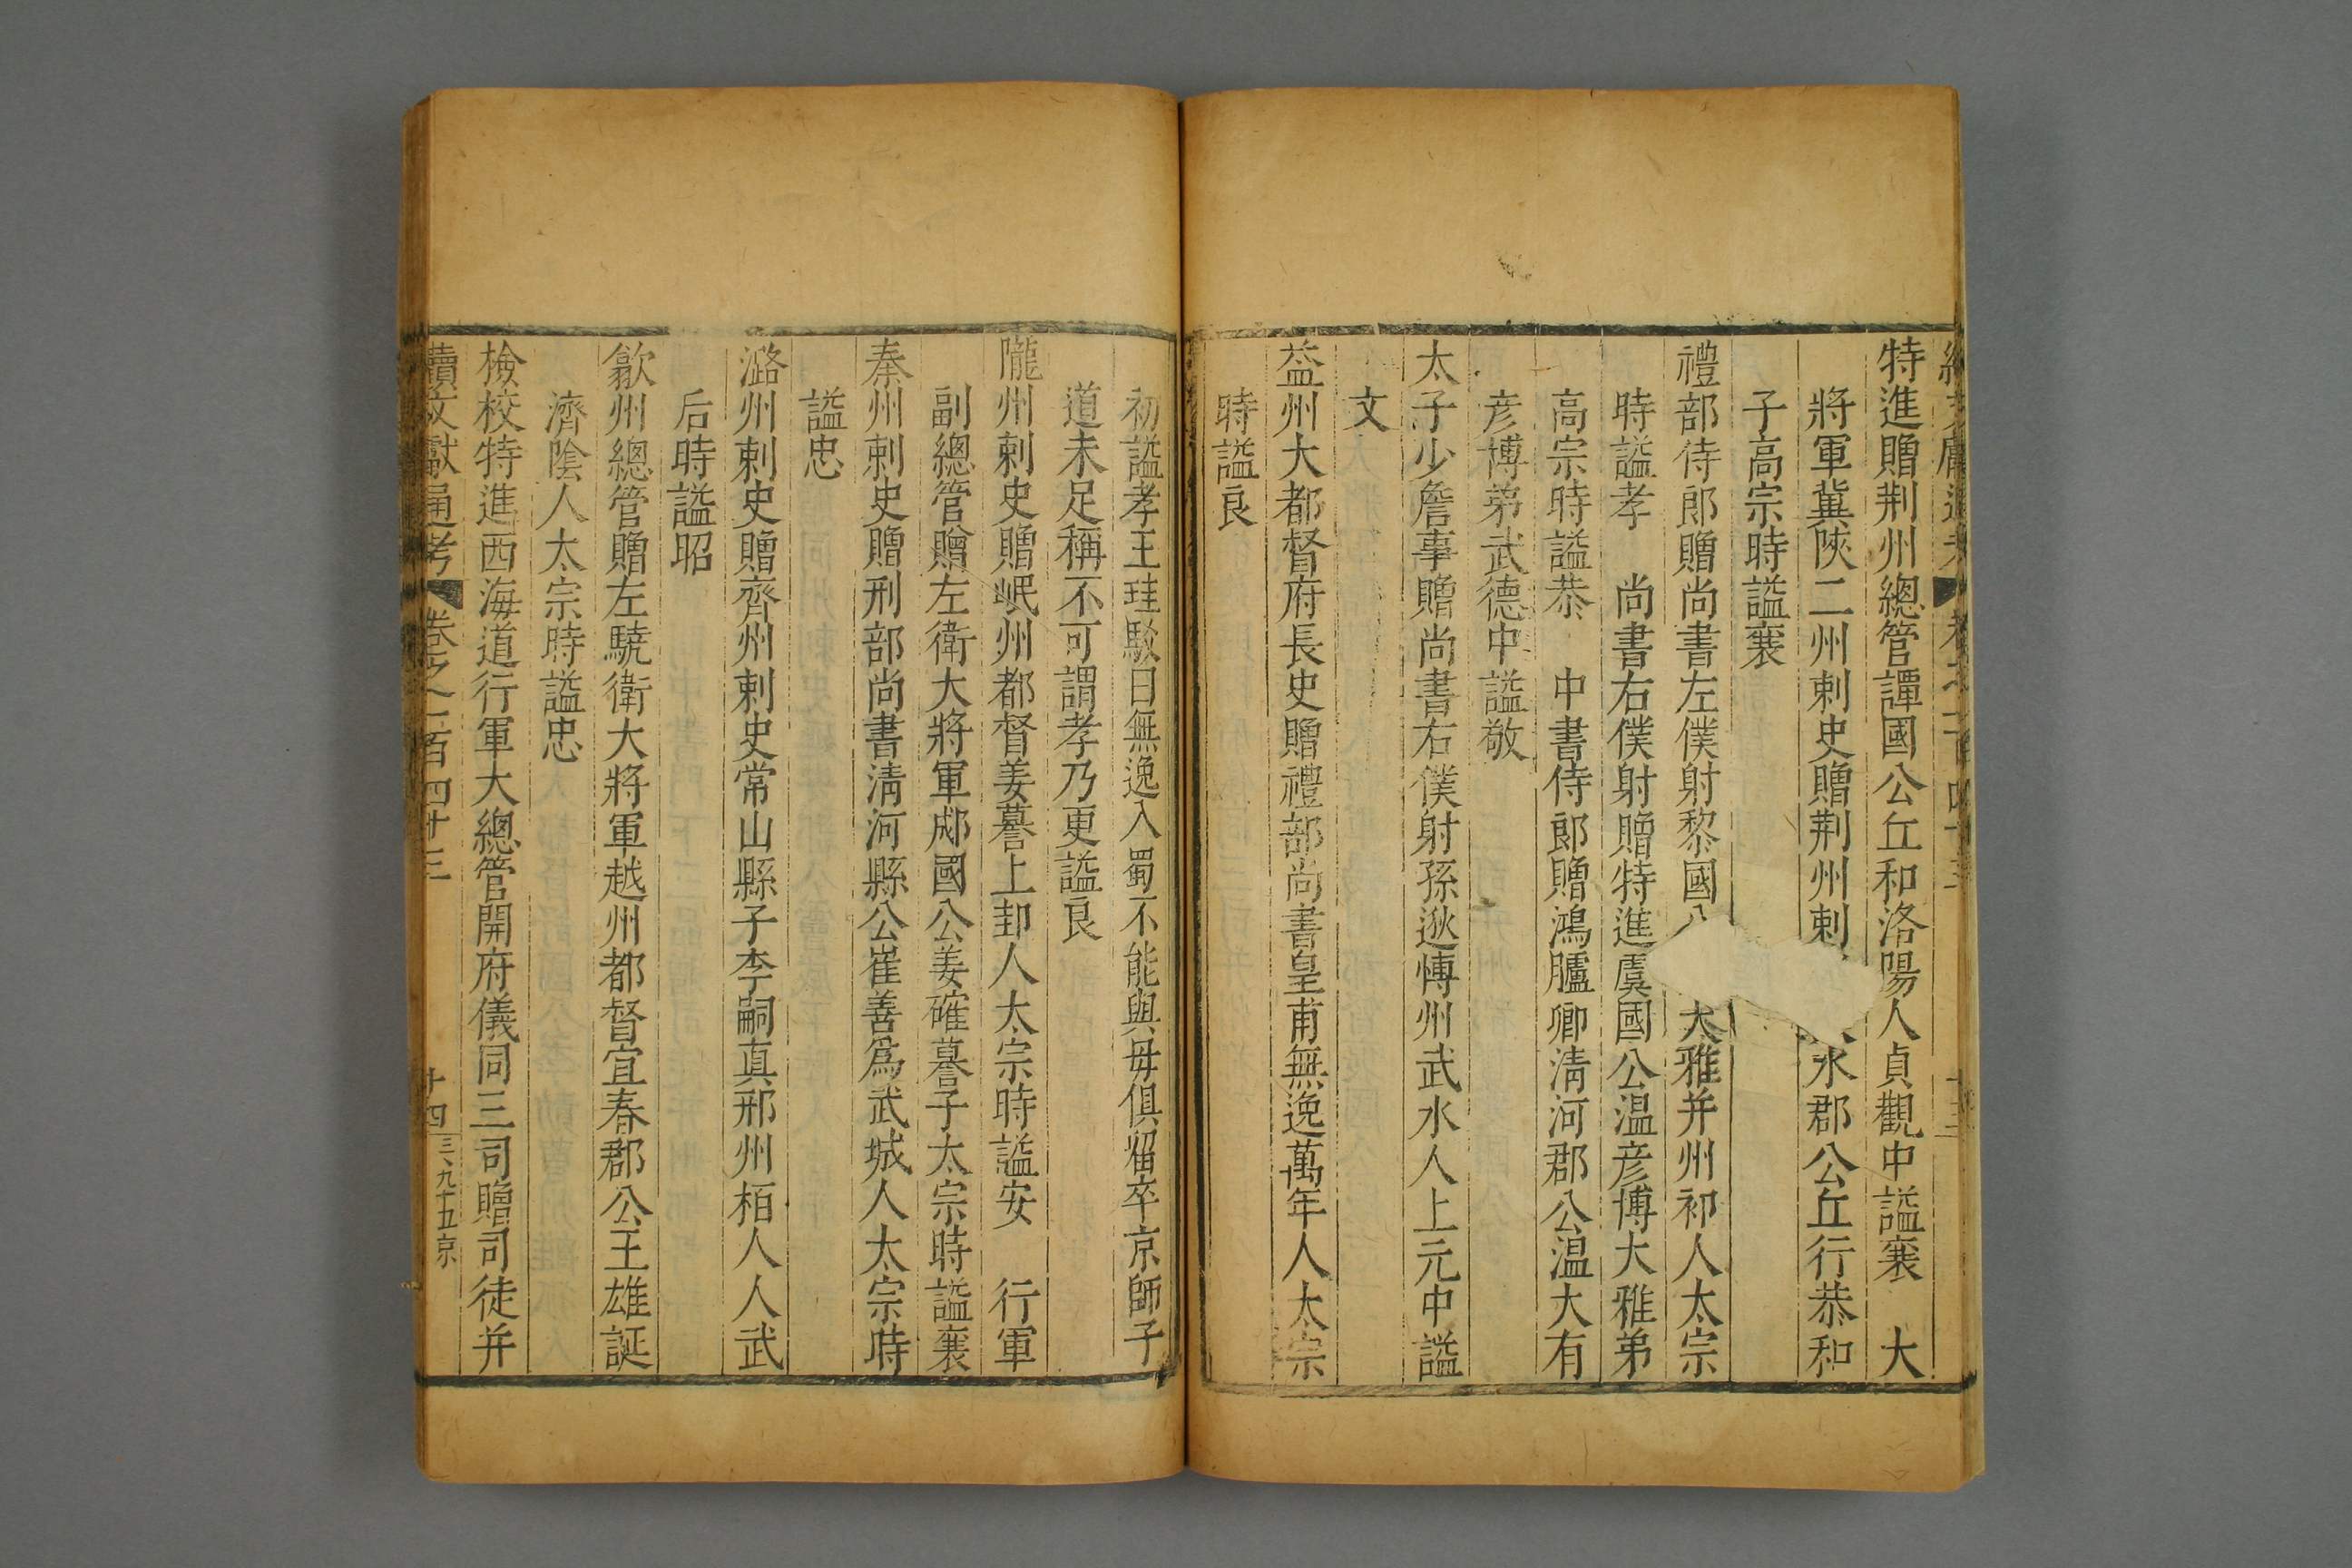 特進贈荆州總管譚國公丘和洛陽人貞觀中謚襄　大
將軍冀陜二州刺史贈荆州刺水郡公丘行恭和
子高宗時謚襄
禮部侍郎贈尚書左僕射黎國大雅并州祁人太宗
時謚孝　尚書右僕射贈特進虞國公温彦博大雅弟
高宗時謚恭　中書侍郎贈鴻臚卿清河郡公温大有
彦博弟武德中謚敬
太子少詹事贈尚書右僕射孫逖博州武水人上元中謚
文
益州大都督府長史贈禮部尚書皇甫無逸萬年人太宗
時謚良
初謚孝王珪駮曰無逸入蜀不能與毋俱留卒京師子
道未足稱不可謂孝乃更謚良
隴州刺史贈岷州都督姜謩上邽人太宗時謚安　行軍
副總管贈左衛大將軍郕國公姜確謩子太宗時謚襄
秦州刺史贈刑部尚書清河縣公崔善爲武城人太宗時
謚忠
潞州刺史贈齊州刺史常山縣子李嗣真邢州栢人人武
后時謚昭
歙州總管贈左驍衛大將軍越州都督宜春郡公王雄誕
濟陰人太宗時謚忠
檢校特進西海道行軍大總管開府儀同三司贈司徒并
續文獻通考　卷之一百四十三　十四　三九十五京